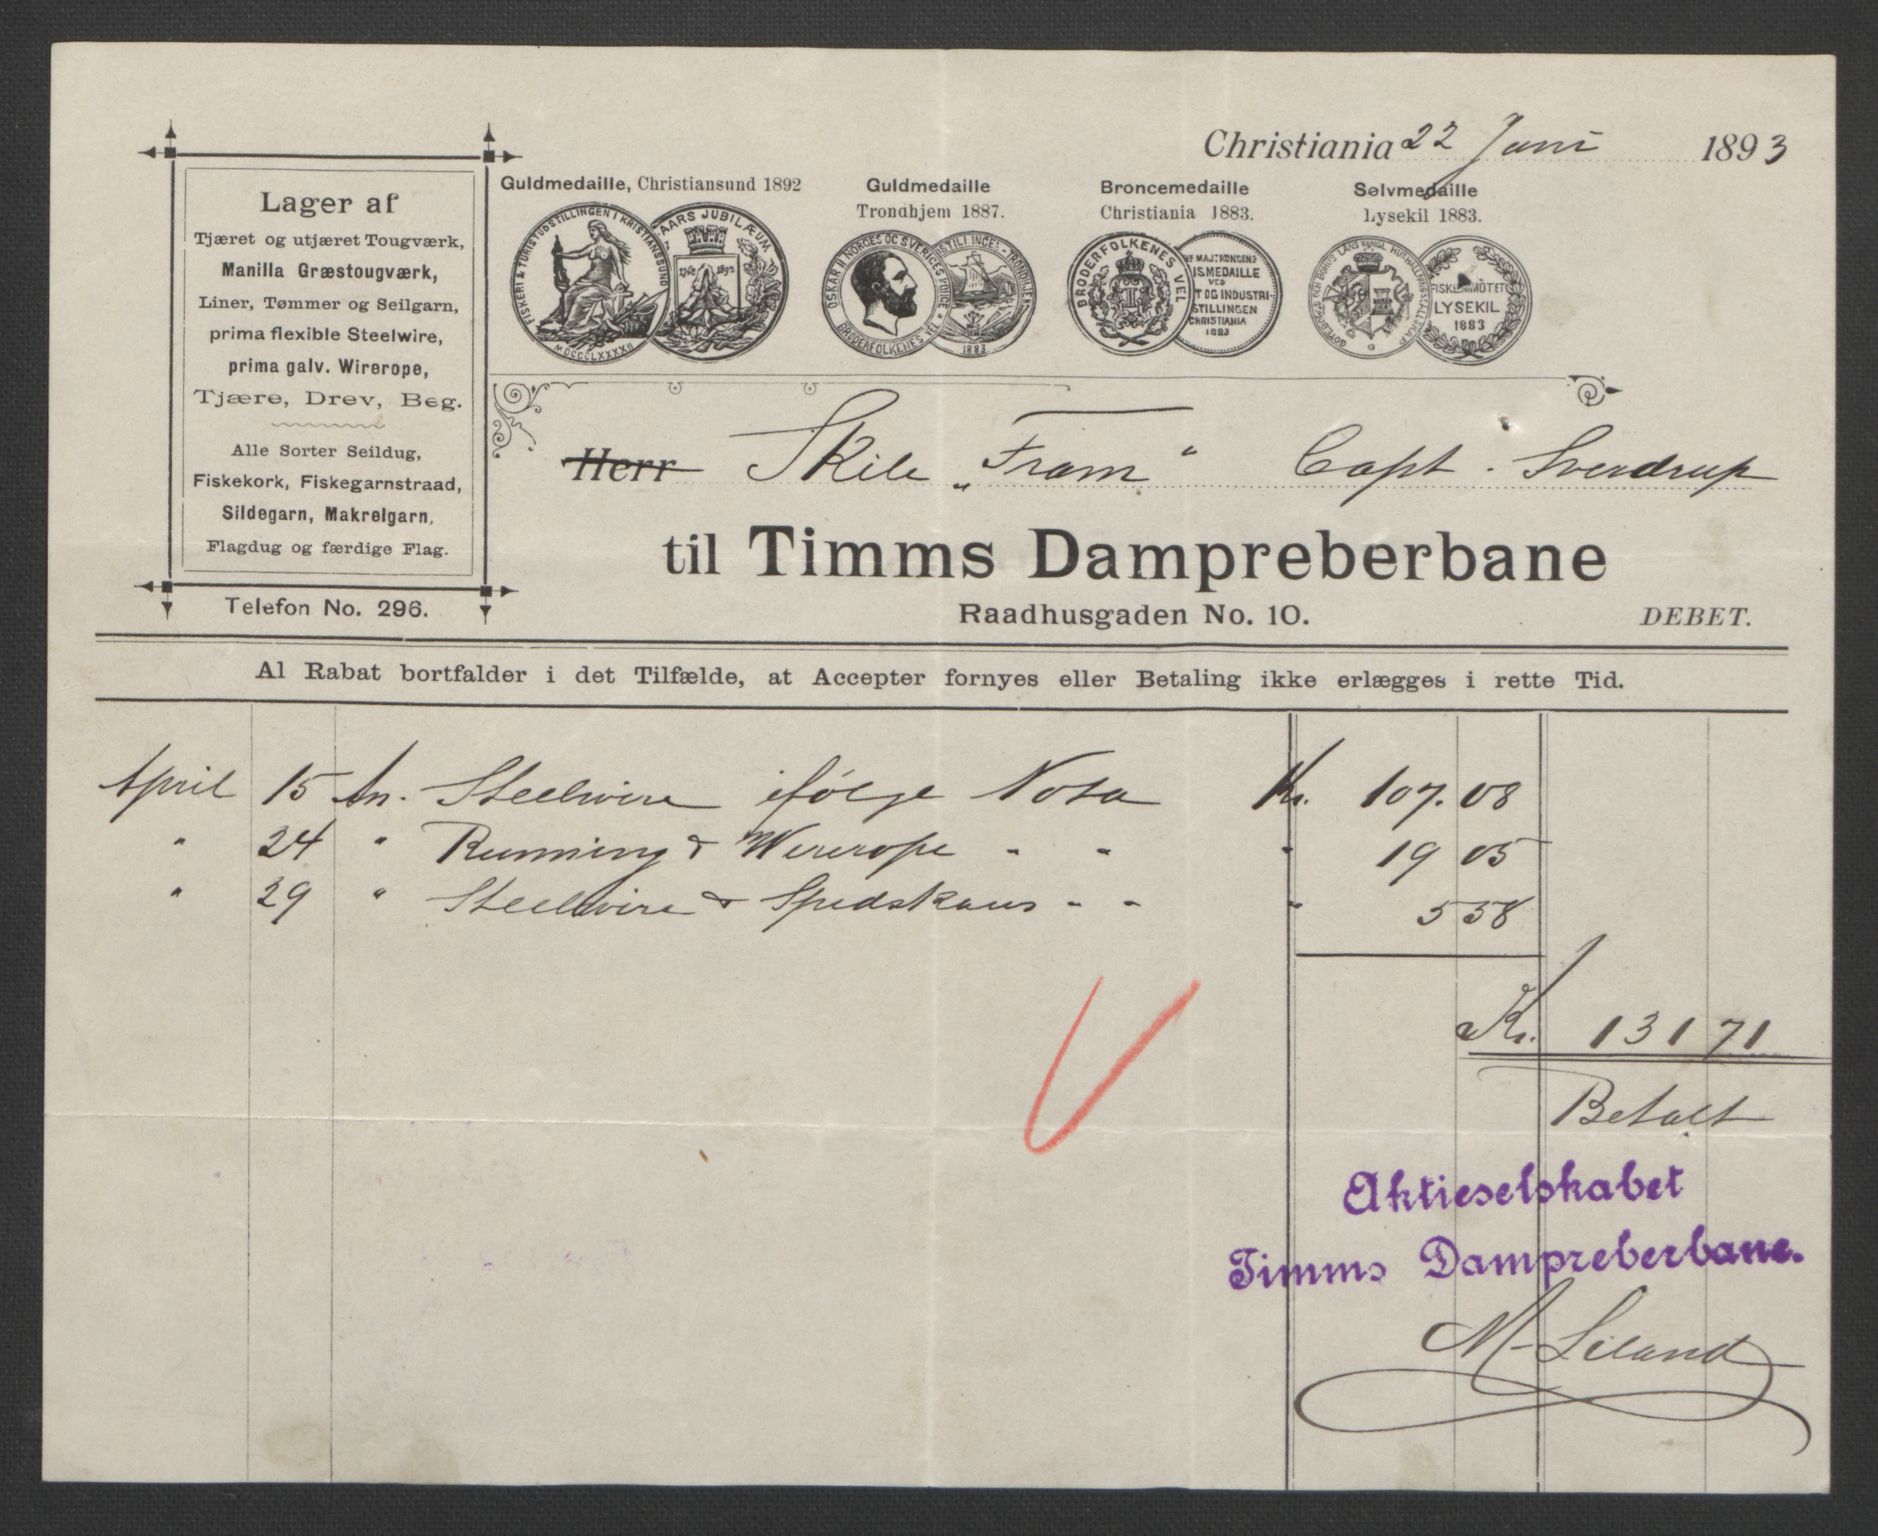 Christiania 22 Juni 1893
Lager af
Tjæret og utjæret Tougværk,
Manilla Græstougværk,
Liner, Tømmer og Seilgarn,
prima flexible Steelwire,
prima galv. Wirerope,
Tjære, Drev, Beg.
Alle Sorter Seildug,
Fiskekork, Fiskegarnstraad,
Sildegarn, Makrelgarn,
Flagdug og færdige Flag.
Telefon No. 296.
Guldmedaille, Christiansund 1892
FISKERI & TURISTUDSTILLINGEN I KRISTIANSSUND
MDCCCLXXXXII
AARS JUBILÆUM
1742 1892
Guldmedaille
Trondhjem 1887.
OSKAR II NORGES OG SVERIGES
BRODERFOLKENES VEL
1883
Broncemedaille
Christiania 1883.
BRODERFOLKENES VEL
MAJT KONGENS
ISMEDAILLE
VED
T OG INDUSTRI-
STILLINGEN
CHRISTIANIA
1883
Sølvmedaille
Lysekil 1883.
FISKERIMÖTET
LYSEKIL
1883
Herr Skib „Fram“ Capt. Sverdrup
til Timms Dampreberbane
Raadhusgaden No. 10.
DEBET.
Al Rabat bortfalder i det Tilfælde, at Accepter fornyes eller Betaling ikke erlægges i rette Tid.
April 15 An. Steelwire ifölge Nota Kr. 107.08
" 24 " Running & Wirerope " " " 19 05
" 29 " Steelwire & Spidskaus " " " 5 58
Kr. 131 71
Betalt
Aktieselskabet
Timms Dampreberbane.
M. Liland